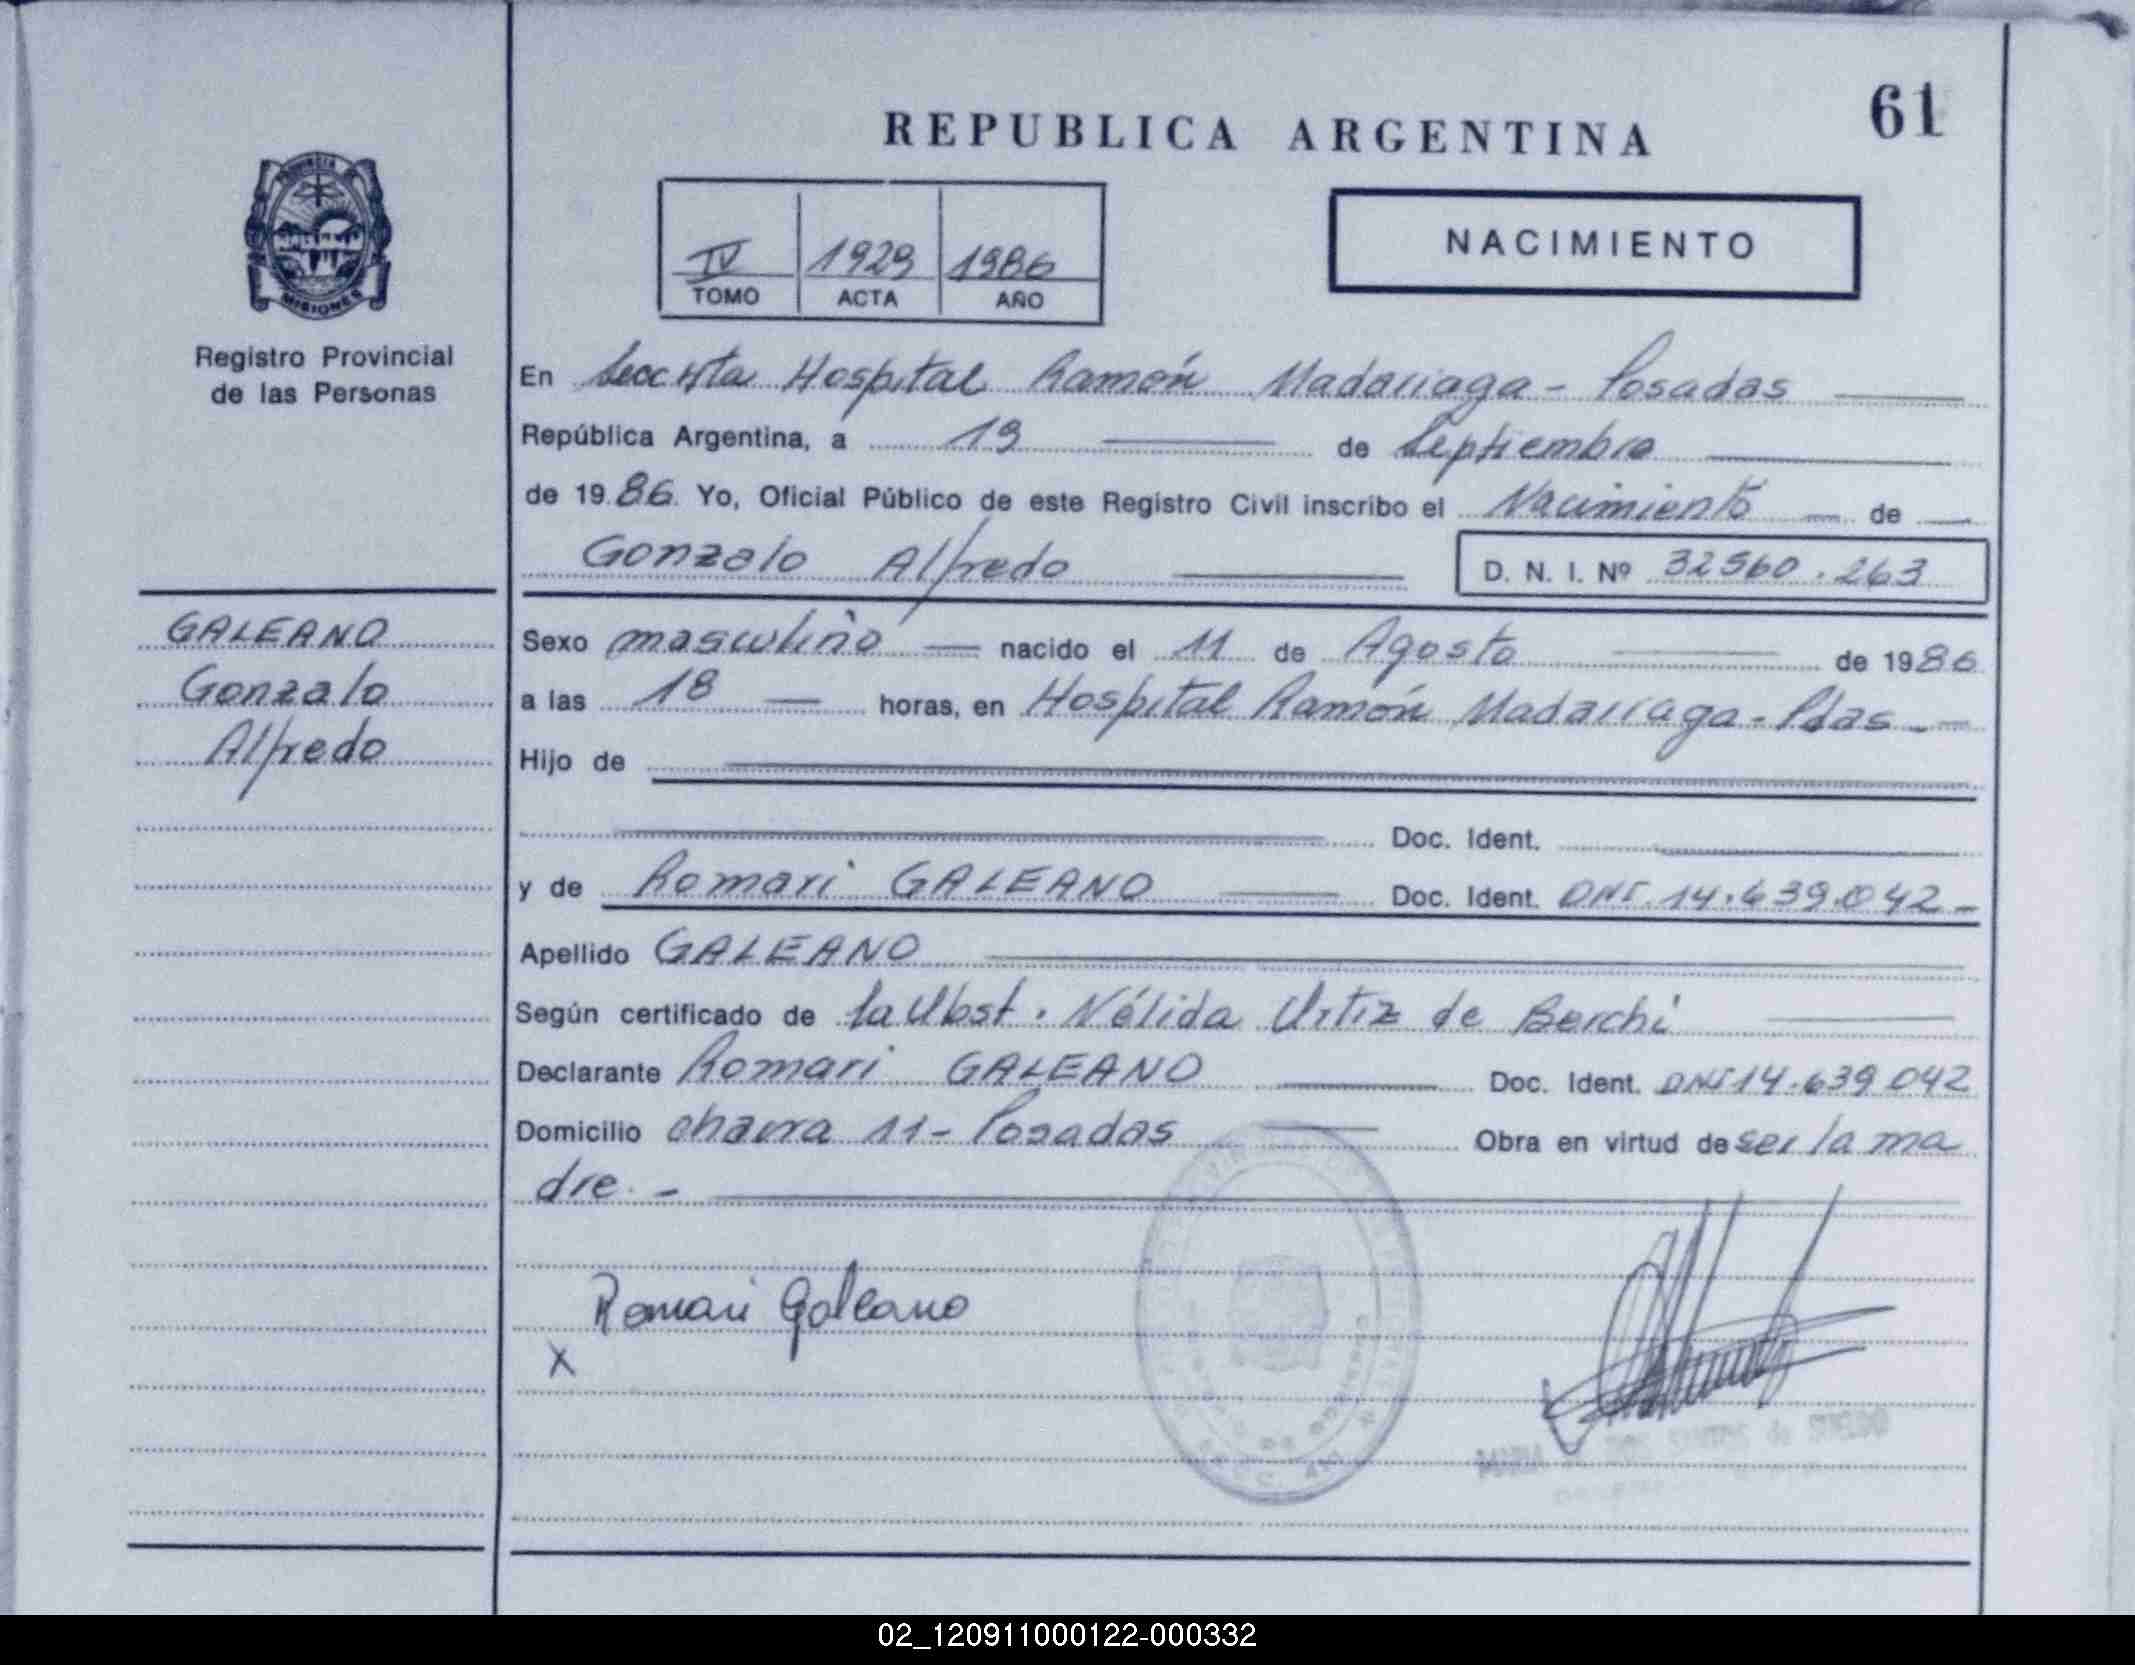 61
REPUBLICA ARGENTINA
PROVINCIA DE
MISIONES
Registro Provincial
de las Personas
IV 1929 1986
TOMO ACTA AÑO
NACIMIENTO
En Hospital Ramón Madariaga - Posadas
República Argentina, a 19 de Septiembre
de 1986. Yo, Oficial Público de este Registro Civil inscribo el Nacimiento de
Gonzalo Alfredo D. N. I. Nº 32560.263
GALEANO
Gonzalo
Alfredo
Sexo masculino nacido el 11 de Agosto de 1986
a las 18 horas, en Hospital Ramón Madariaga - Pdas -
Hijo de
Doc. Ident.
y de Romari GALEANO Doc. Ident. DNI. 14.639.042 -
Apellido GALEANO
Según certificado de la Obst. Nélida Ortiz de Berchi
Declarante Romari GALEANO Doc. Ident. DNI 14.639.042
Domicilio chacra 11 - Posadas Obra en virtud de ser la ma
dre. -
Romari Galeano
X
DOS SANTOS de
02_120911000122-000332